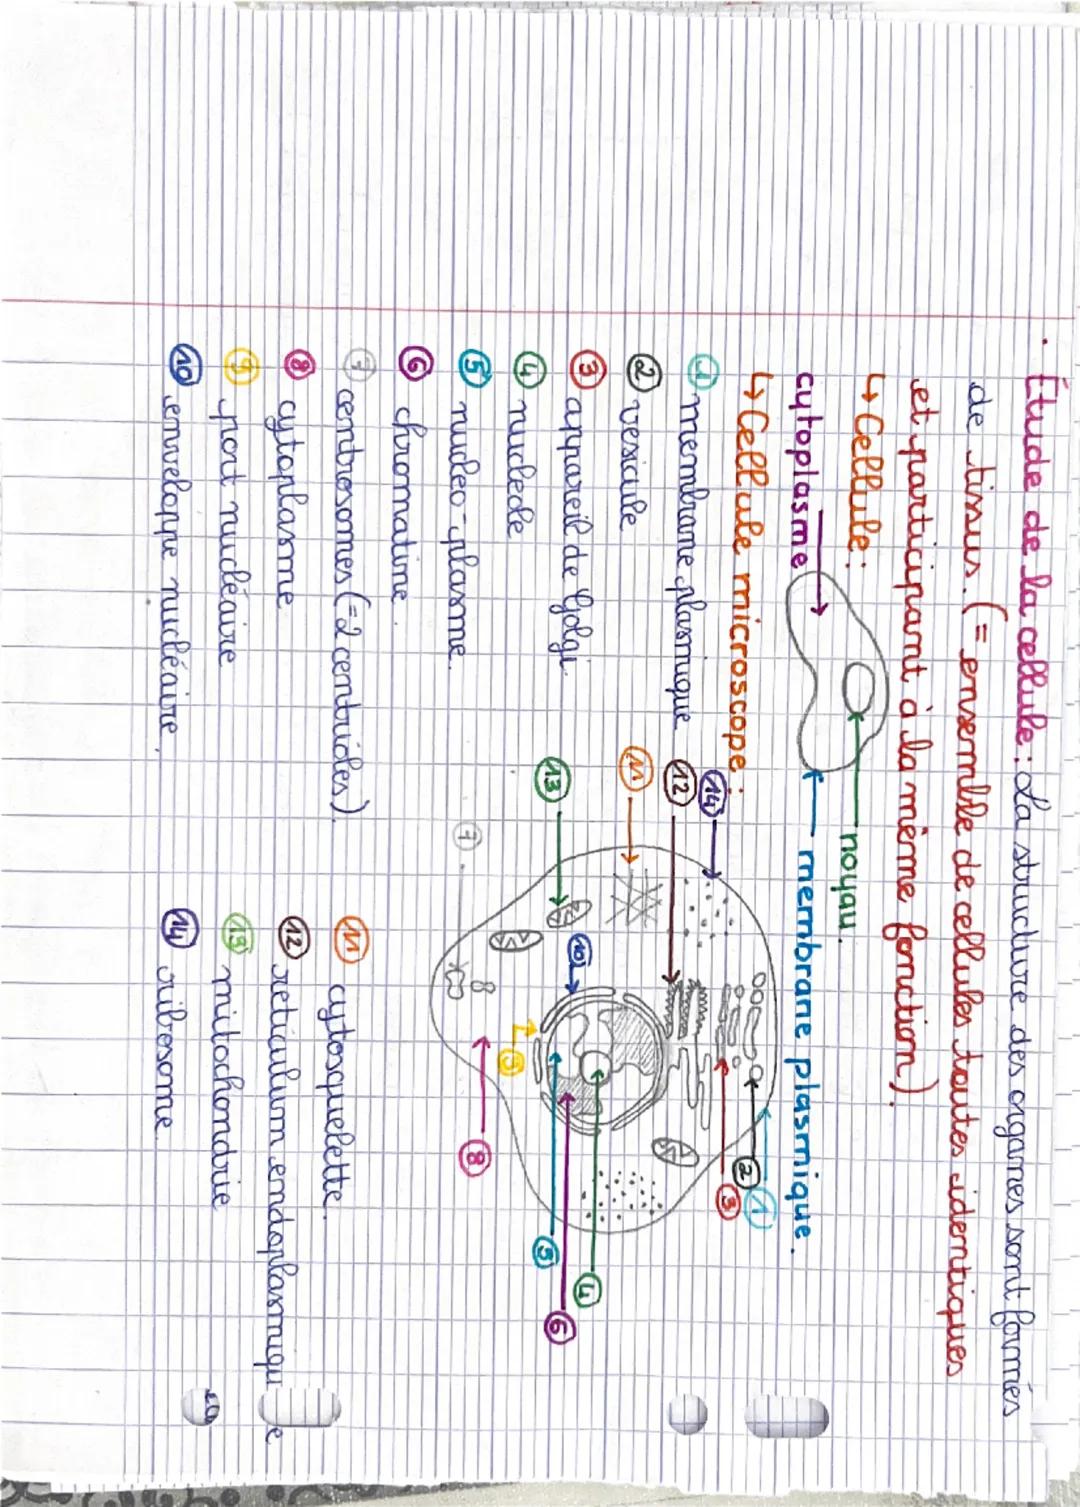 . Étude de la cellule : La structure des organes sont formés
de tissus. (= ensemble de cellules toutes identiques
et participant à la même fonction).
↳ Cellule :
noyau.
cytoplasme
membrane plasmique.
↳ Cellule microscope :
① membrane plasmique
② vesicule
③ appareil de Golgi.
④ nucléole
⑤ nucleo-plasme.
⑥ chromatine.
⑦ centrosomes (=2 centrioles).
⑧ cytoplasme
⑨ port nucléaire
⑩ enveloppe nucléaire.
14
12
11
13
7
10
9
8
1
2
3
4
5
6
⑪ cytosquelette.
⑫ reticulum endoplasmique
⑬ mitochondrie
⑭ ribosome.